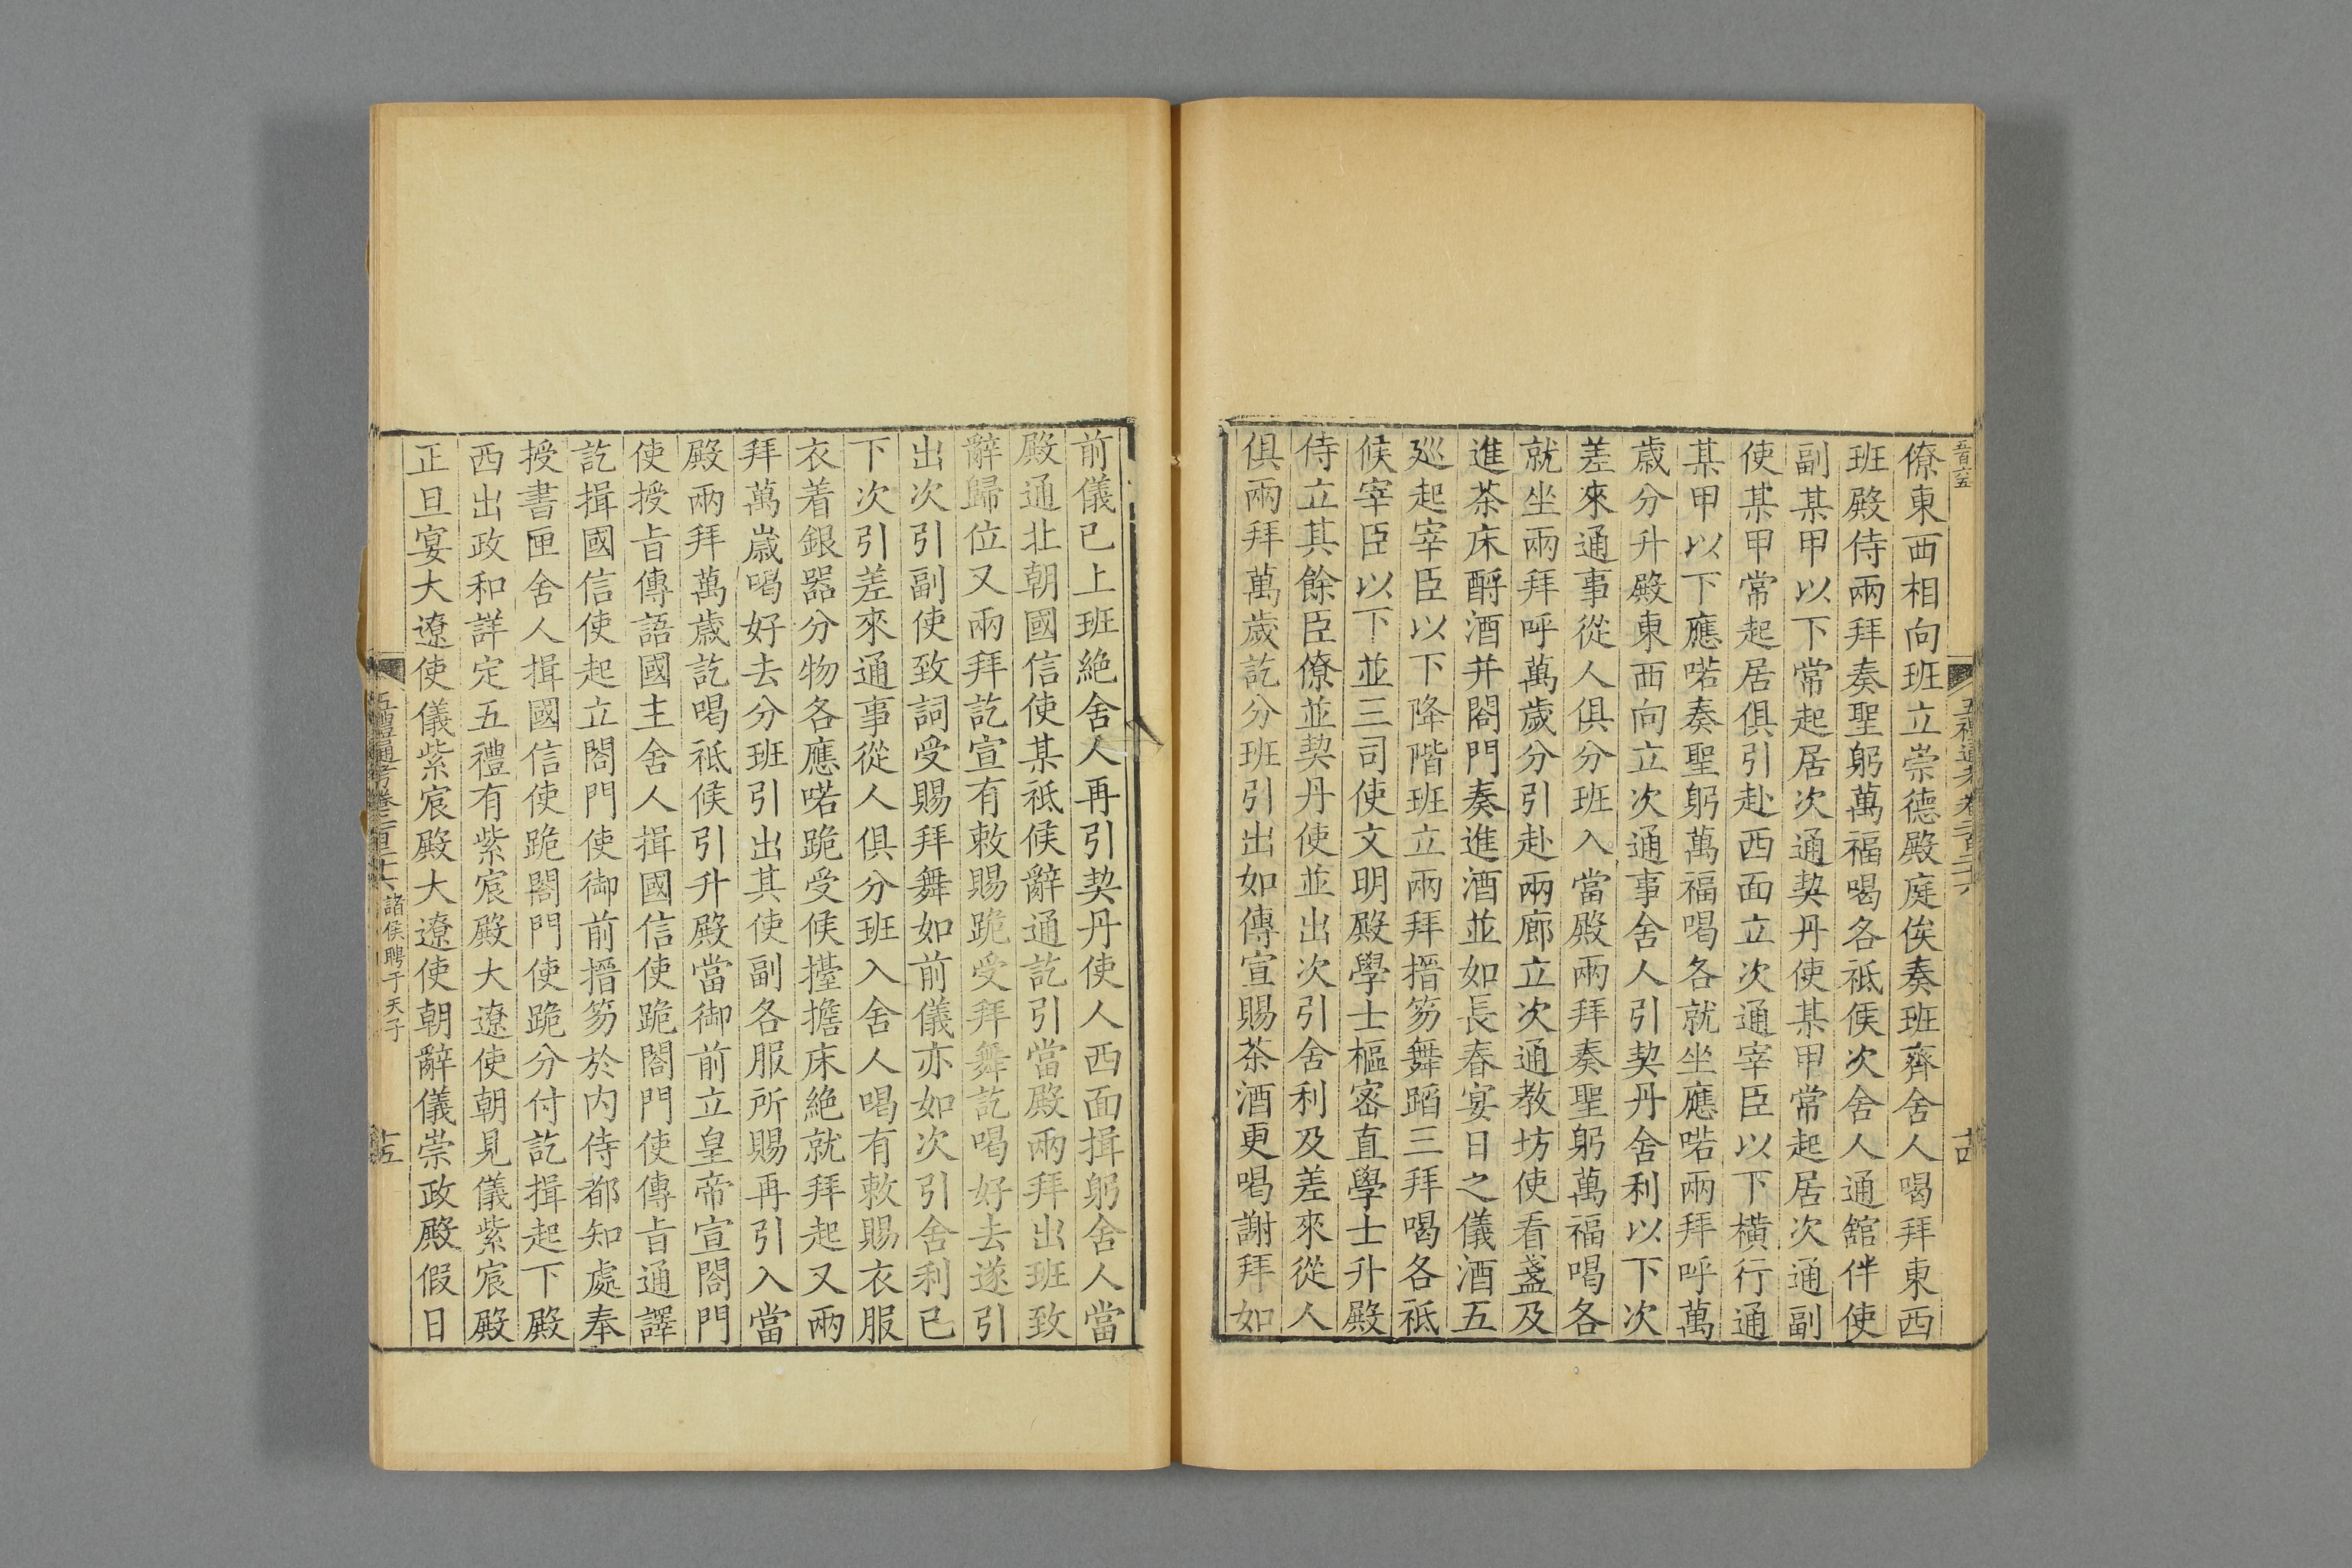 僚東西相向班立崇德殿庭俟奏班齊舍人喝拜東西
班殿侍兩拜奏聖躬萬福喝各祗𠊱次舍人通舘伴使
副某甲以下常起居次通契丹使某甲常起居次通副
使某甲常起居俱引赴西面立次通宰臣以下橫行通
某甲以下應喏奏聖躬萬福喝各就坐應喏兩拜呼萬
歳分升殿東西向立次通事舍人引契丹舍利以下次
差來通事從人俱分班入當殿兩拜奏聖躬萬福喝各
就坐兩拜呼萬歲分引赴兩廊立次通教坊使看盞及
進茶床酹酒并閤門奏進酒並如長春宴日之儀酒五
廵起宰臣以下降階班立兩拜搢笏舞蹈三拜喝各祗
候宰臣以下並三司使文明殿學士樞宻直學士升殿
侍立其餘臣僚並契丹使並出次引舍利及差來從人
俱兩拜萬歲訖分班引出如傳宣賜茶酒更喝謝拜如
十四
前儀已上班絕舍人再引契丹使人西面揖躬舍人當
殿通北朝國信使某祗候辭通訖引當殿兩拜出班致
辭歸位又兩拜訖宣有敕賜跪受拜舞訖喝好去遂引
出次引副使致詞受賜拜舞如前儀亦如次引舍利已
下次引差來通事從人俱分班入舍人喝有敕賜衣服
衣着銀器分物各應喏跪受候擡擔床絕就拜起又兩
拜萬歳喝好去分班引出其使副各服所賜再引入當
殿兩拜萬歲訖喝祗候引升殿當御前立皇帝宣閤門
使授旨傳語國主舍人揖國信使跪閤門使傳旨通譯
訖揖國信使起立閤門使御前搢笏於内侍都知處奉
授書匣舍人揖國信使跪閤門使跪分付訖揖起下殿
西出政和詳定五禮有紫宸殿大遼使朝見儀紫宸殿
正旦宴大遼使儀紫宸殿大遼使朝辭儀崇政殿假日
五禮通考卷二百二十六 諸侯聘于天子 十五